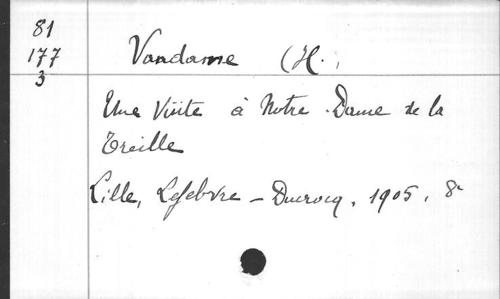 81
177
3
Vandame (H.)
Une Visite à Notre-Dame de la
Treille
Lille, Lefebvre-Ducrocq, 1905, 8°